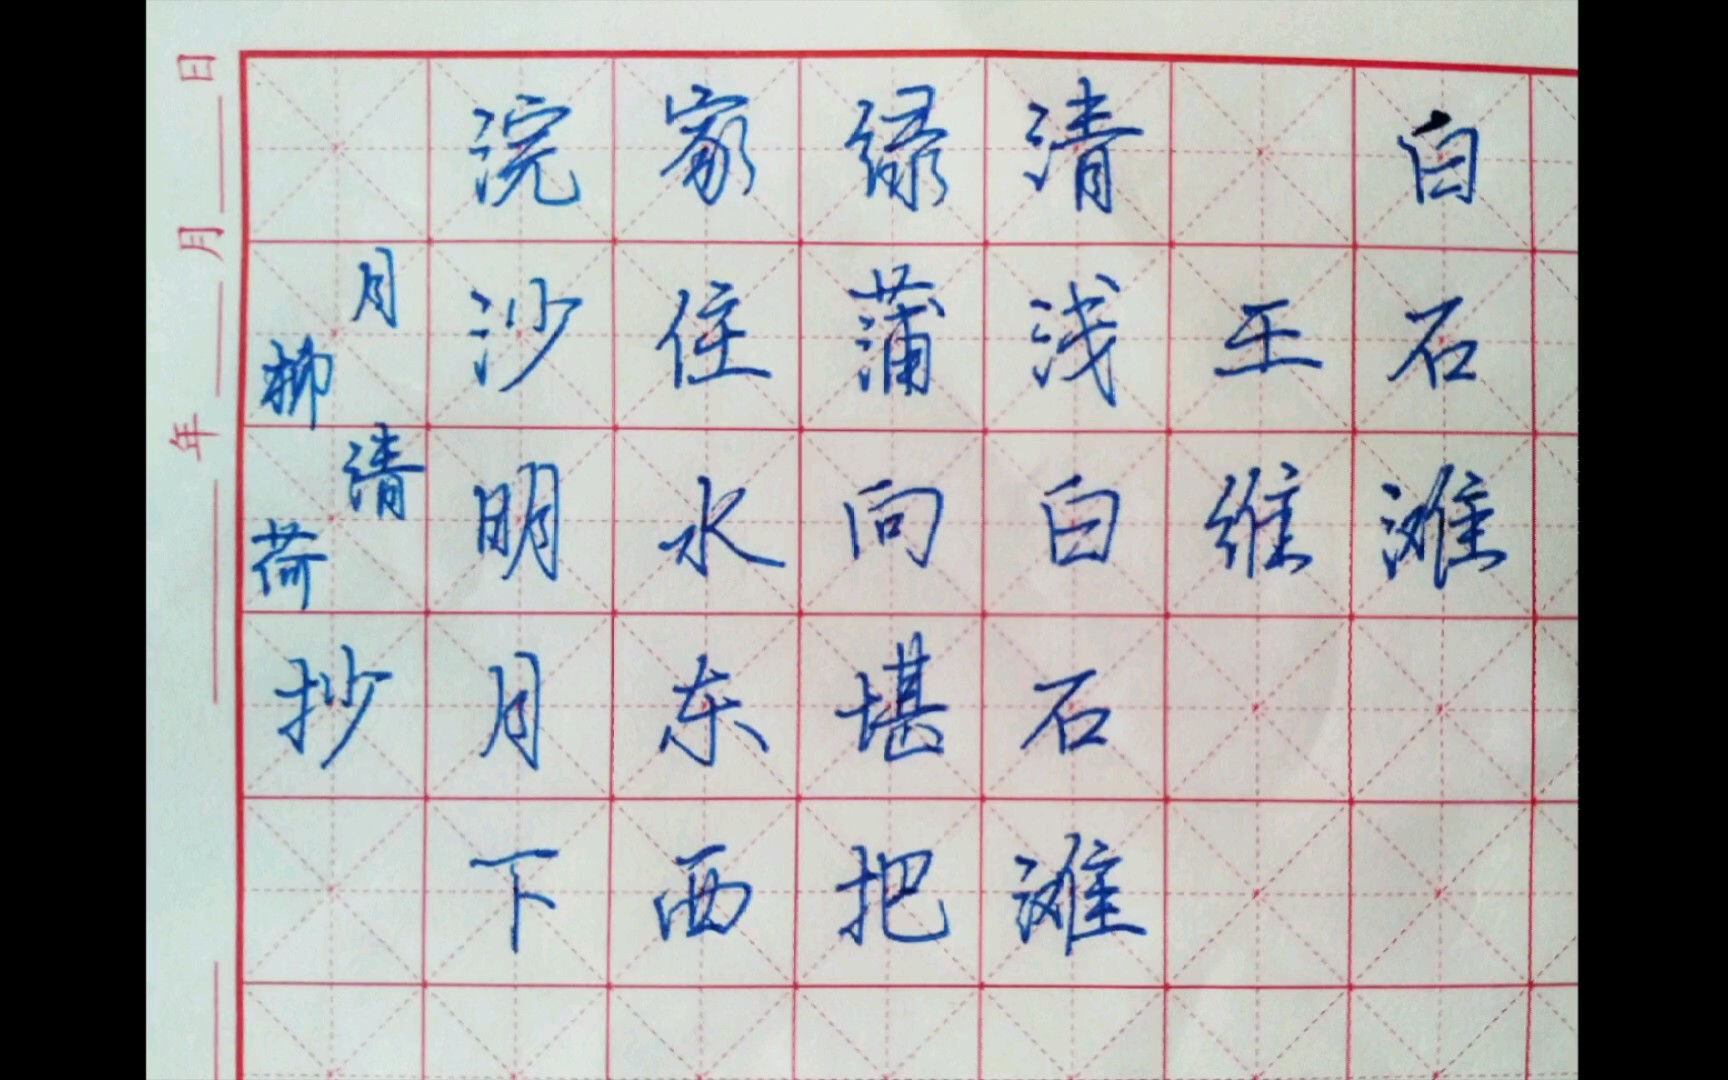 白石滩
王维
清浅白石滩
绿蒲向堪把
家住水东西
浣沙明月下
月清
柳荷
抄
年 月 日